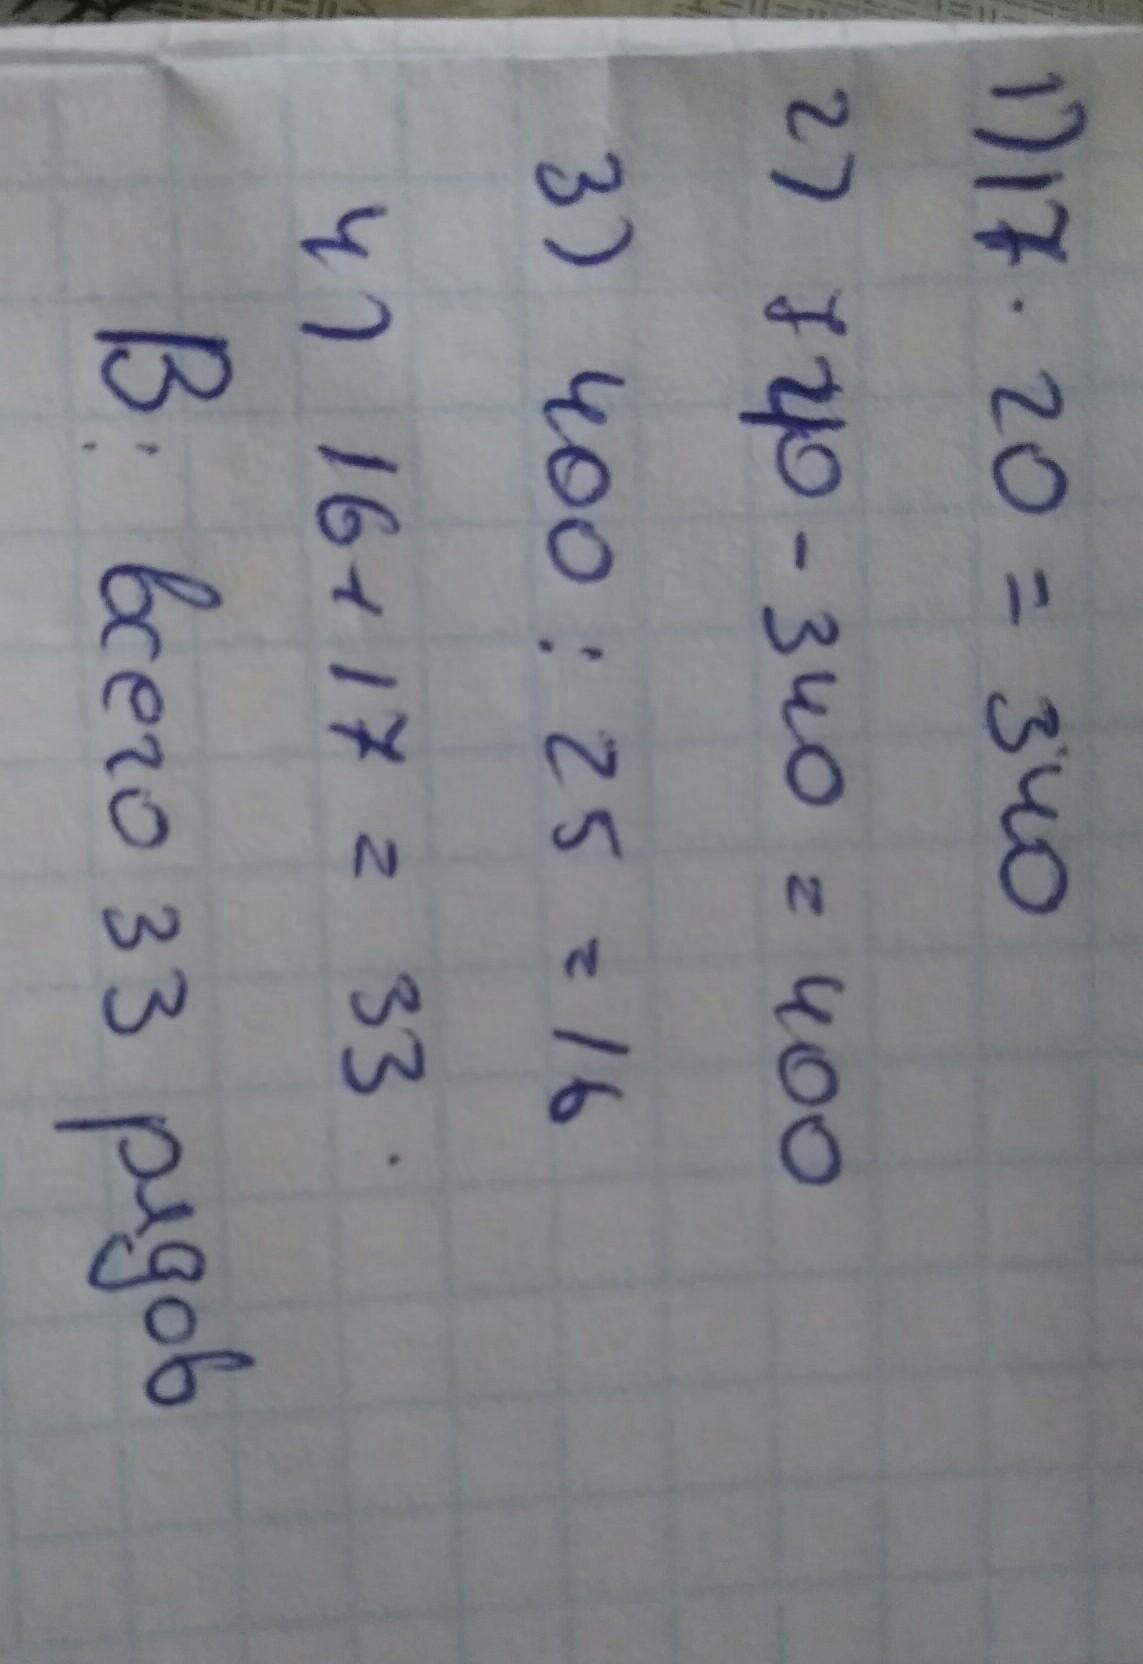 1) 17 · 20 = 340
2) 740 - 340 = 400
3) 400 : 25 = 16
4) 16 + 17 = 33.
В: всего 33 рядов